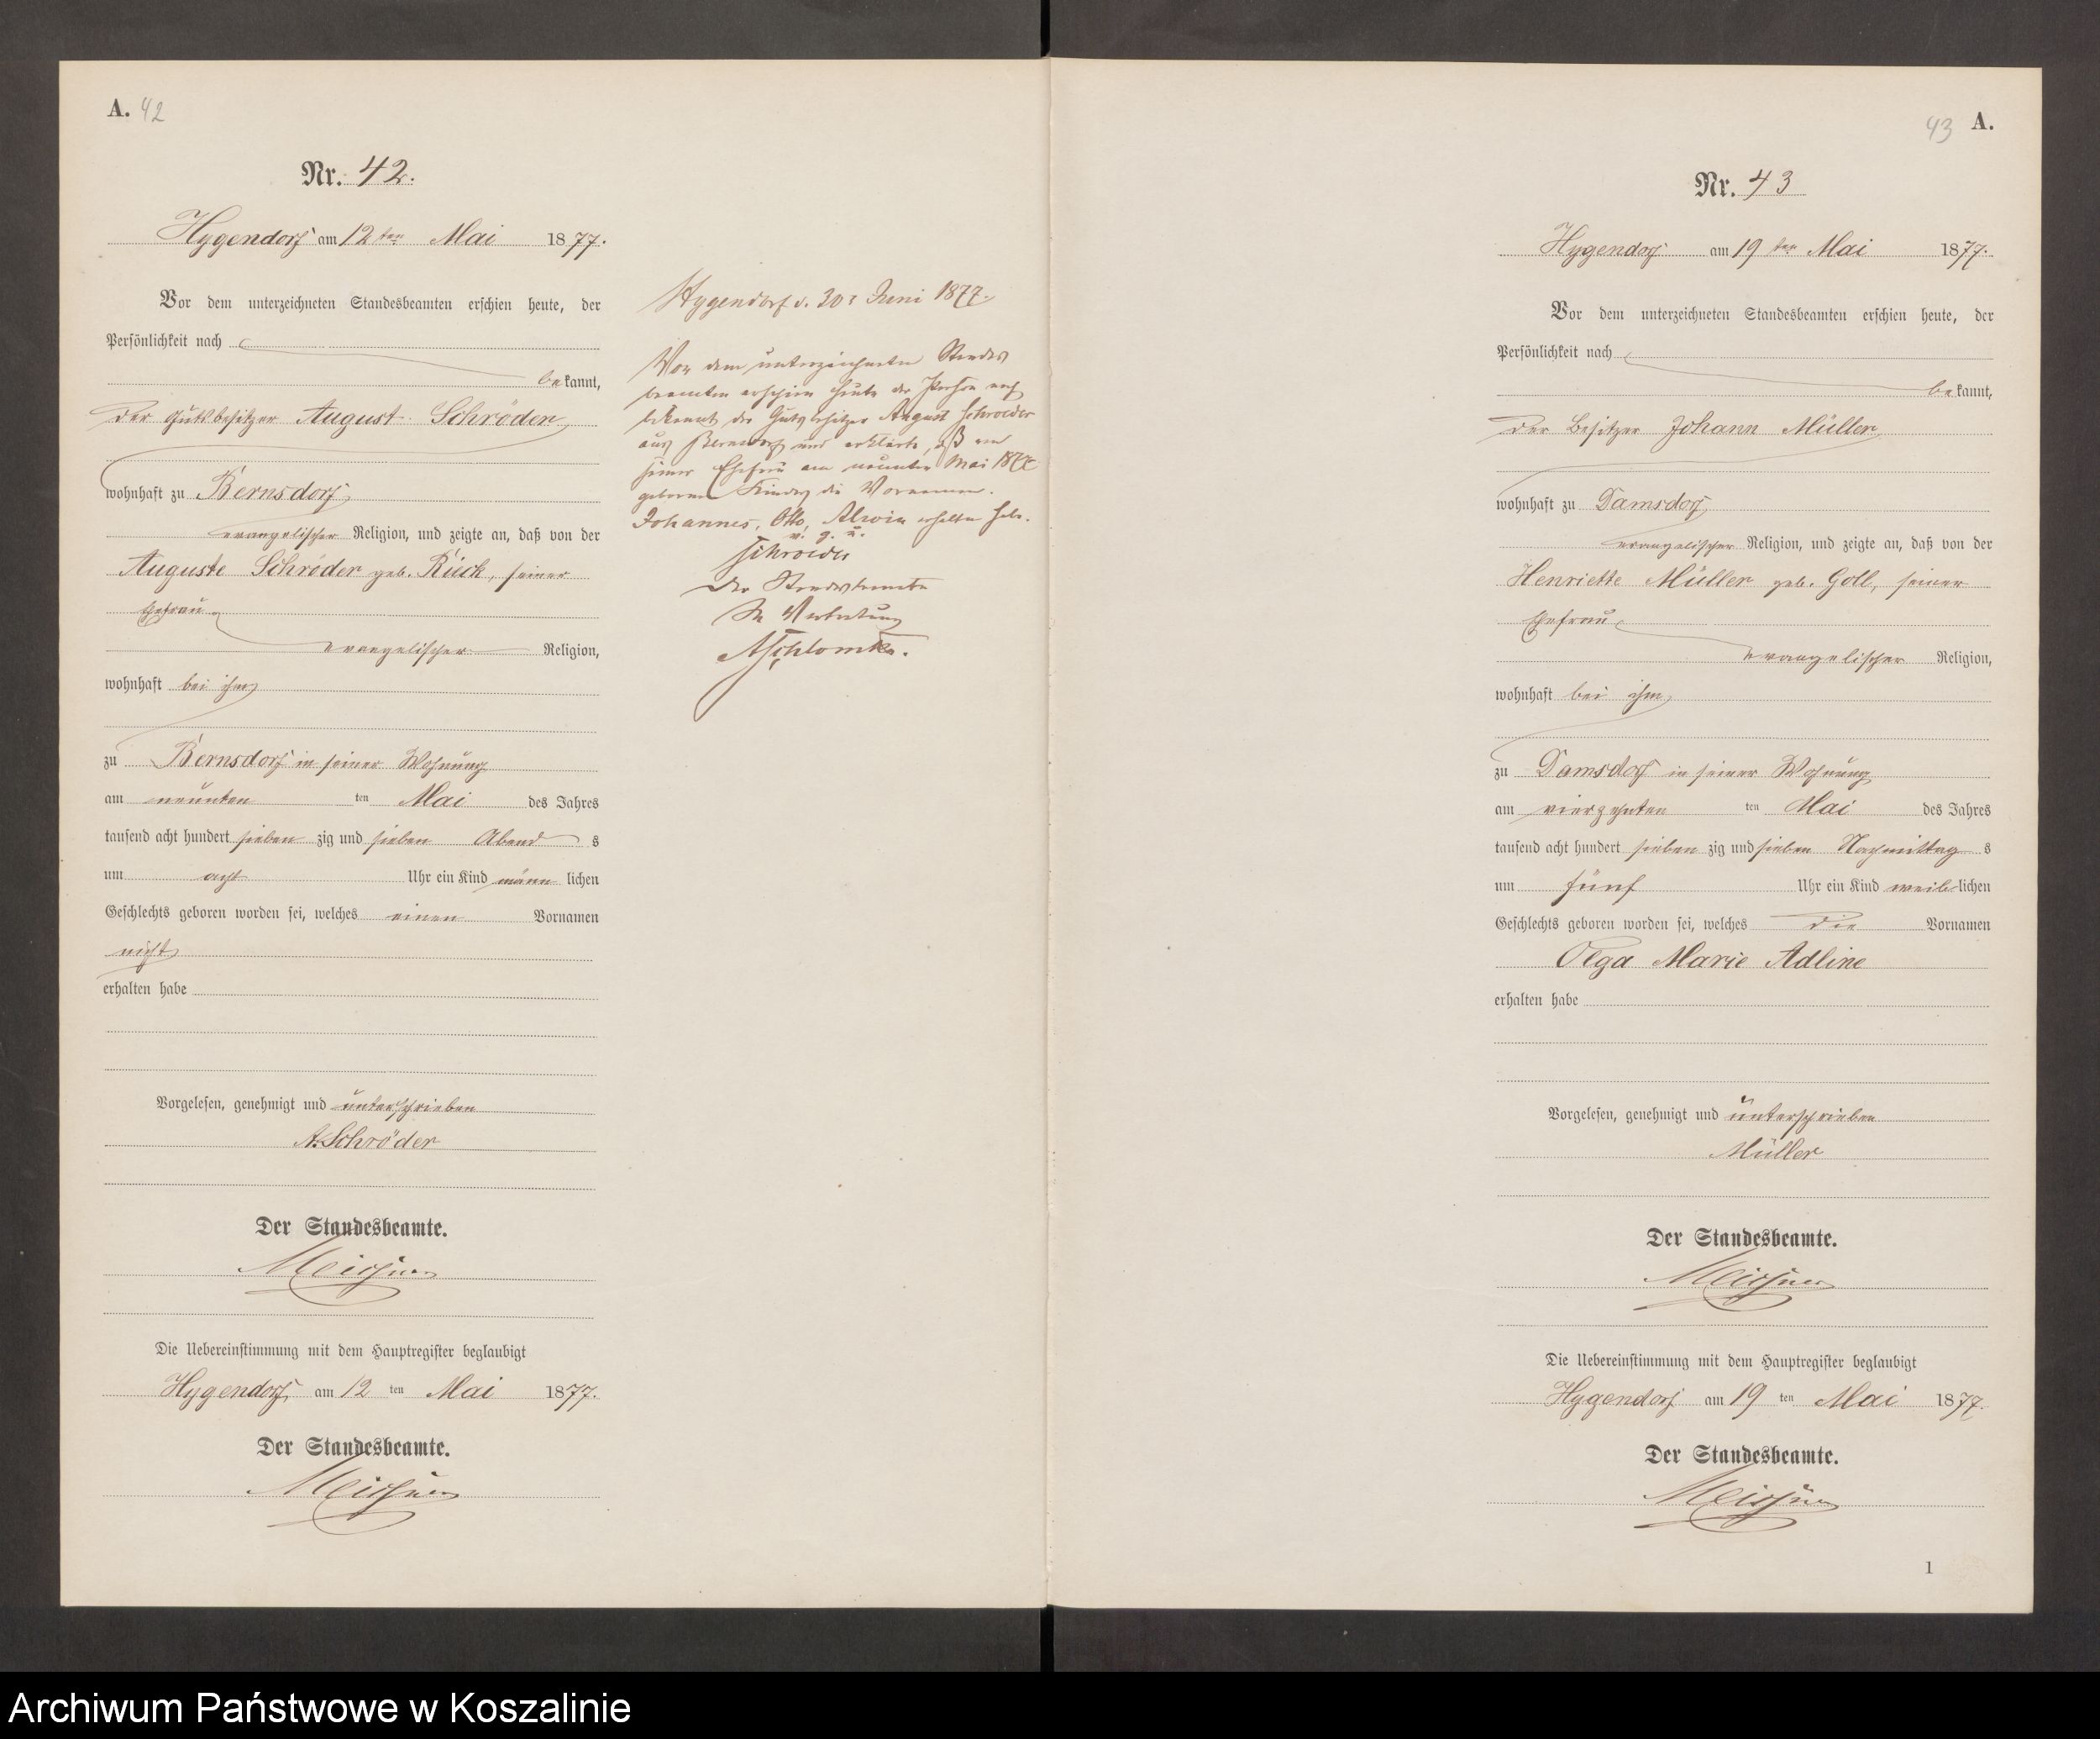 A. 42
Nr. 42.
Hygendorf am 12 ten Mai 1877.
Vor dem unterzeichneten Standesbeamten erschien heute, der
Persönlichkeit nach
bekannt,
der Gutsbesitzer August Schröder
wohnhaft zu Bernsdorf
evangelischer Religion, und zeigte an, daß von der
Auguste Schröder geb. Rück, seiner
Ehefrau
evangelischer Religion,
wohnhaft bei ihm
zu Bernsdorf in seiner Wohnung
am neunten ten Mai des Jahres
tausend acht hundert sieben zig und sieben Abend s
um acht Uhr ein Kind männ lichen
Geschlechts geboren worden sei, welches einen Vornamen
nicht
erhalten habe
Vorgelesen, genehmigt und unterschrieben
A. Schröder
Der Standesbeamte.
Die Uebereinstimmung mit dem Hauptregister beglaubigt
Hygendorf am 12 ten Mai 1877.
Der Standesbeamte.
Hygendorf d. 30t Juni 1877.
Vor dem unterzeichneten Standes
beamten erschien heute der Person nach
bekannt der Gutsbesitzer August Schroeder
aus Bernsdorf und erklärte, daß von
seiner Ehefrau am neunten Mai 1877
geborenen Kinde die Vornamen
Johannes, Otto, Alwin erhalten habe.
v. g. u.
Schroeder
Der Standesbeamte
In Vertretung
43 A.
Nr. 43
Hygendorf am 19 ten Mai 1877.
Vor dem unterzeichneten Standesbeamten erschien heute, der
Persönlichkeit nach
bekannt,
der Besitzer Johann Müller
wohnhaft zu Damsdorf
evangelischer Religion, und zeigte an, daß von der
Henriette Müller geb. Goll, seiner
Ehefrau
evangelischer Religion,
wohnhaft bei ihm
zu Damsdorf in seiner Wohnung
am vierzehnten ten Mai des Jahres
tausend acht hundert sieben zig und sieben Nachmittag s
um fünf Uhr ein Kind weib lichen
Geschlechts geboren worden sei, welches die Vornamen
Olga Marie Adline
erhalten habe
Vorgelesen, genehmigt und unterschrieben
Müller
Der Standesbeamte.
Die Uebereinstimmung mit dem Hauptregister beglaubigt
Hygendorf am 19 ten Mai 1877.
Der Standesbeamte.
1
Archiwum Państwowe w Koszalinie